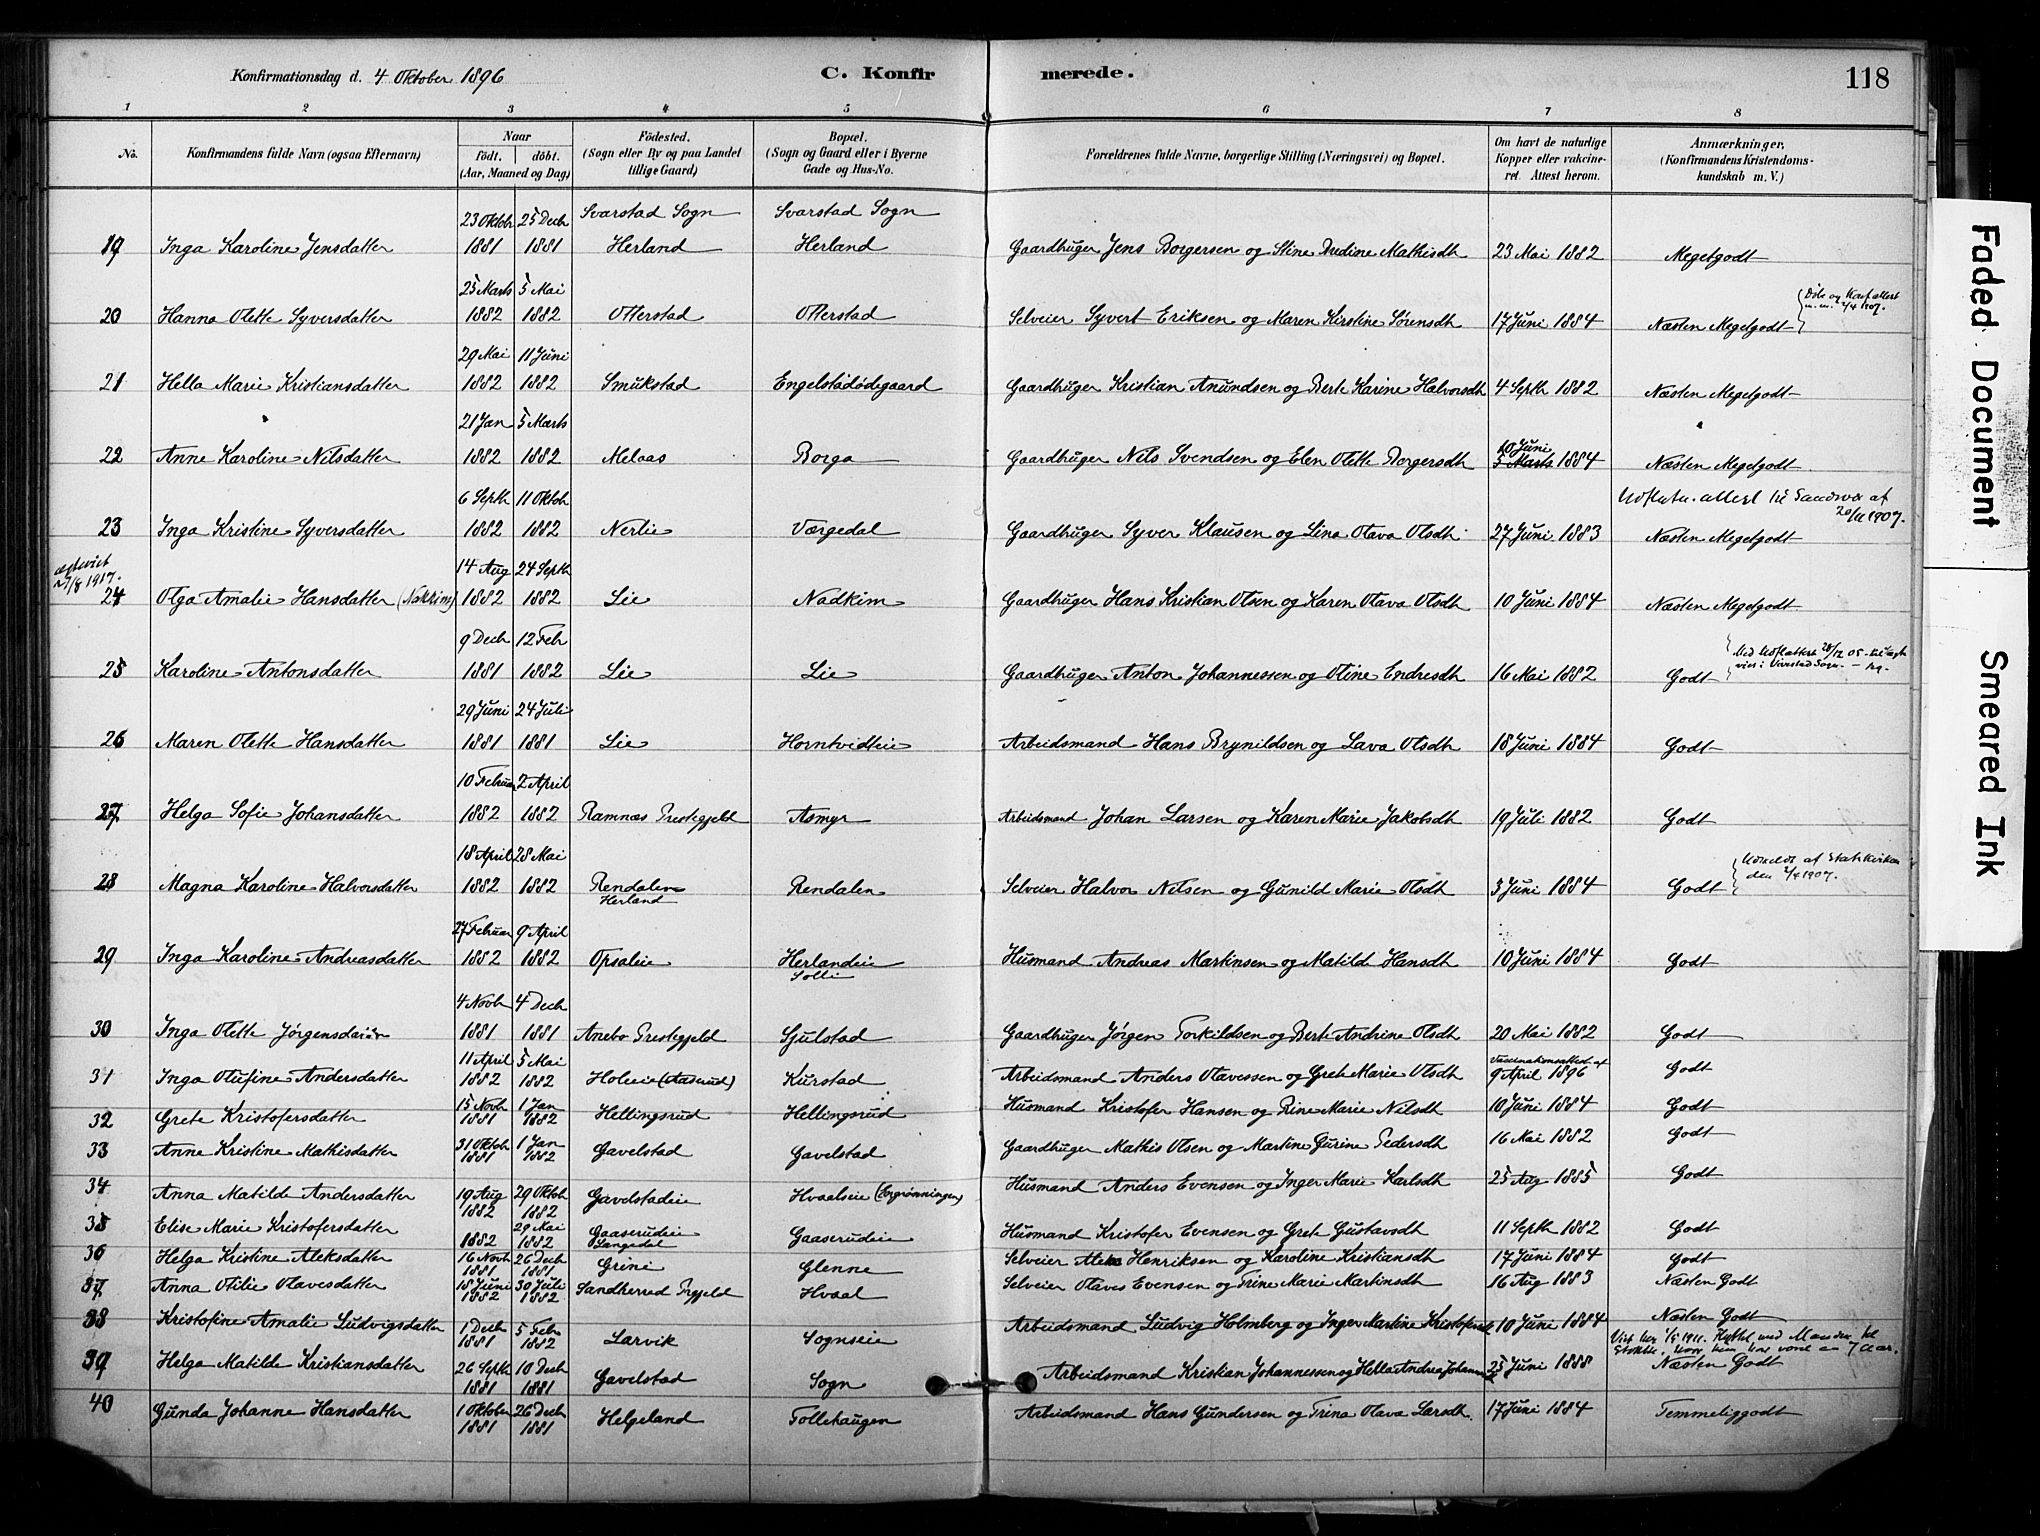 Konfirmationsdag d. 4 Oktober 1896 C. Konfirmerede. 118
1 2 3 4 5 6 7 8
No. Konfirmandens fulde Navn (ogsaa Efternavn) Naar født. døbt. (Aar, Maaned og Dag) Födested. (Sogn eller By og paa Landet tillige Gaard) Bopæl. (Sogn og Gaard eller i Byerne Gade og Hus-No. Forældrenes fulde Navne, borgerlige Stilling (Næringsvei) og Bopæl. Om havt de naturlige Kopper eller vakcineret. Attest herom. Anmærkninger, (Konfirmandens Kristendomskundskab m. V.)
23 Oktobr 25 Decb Svarstad Sogn Svarstad Sogn
19 Inga Karoline Jensdatter 1881 1881 Herland Herland Gaardbruger Jens Borgersen og Stine Mathisdh 23 Mai 1882 Megetgodt
25 Marts 5 Mai
20 Hanna Olette Syversdatter 1882 1882 Otterstad Otterstad Selveier Syvert Eriksen og Maren Kirstine Sørensdh 17 Juni 1884 Næsten Megetgodt
29 Mai 11 Juni
21 Hella Marie Kristiansdatter 1882 1882 Smukstad Engelstadødegaard Gaardbruger Kristian Anundsen og Berte Karine Halvorsdh 4 Septb 1882 Næsten Megetgodt
21 Jan 5 Marts
22 Anne Karoline Nilsdatter 1882 1882 Melaas Borga Gaardbruger Nils Svendsen og Elen Olette Borgersdh 10 Juni 5 Marts 1884 Næsten Megetgodt
6 Septb 11 Oktob
23 Inga Kristine Syversdatter 1882 1882 Nerlie Værgedal Gaardbruger Syver Klausen og Lina Olava Olsdh 27 Juni 1883 Næsten Megetgodt
14 Aug 24 Septb
24 Olga Amalie Hansdatter (Nakkim) 1882 1882 Lie Nadkim Gaardbruger Hans Kristian Olsen og Karen Olava Olsdh 10 Juni 1884 Næsten Megetgodt
9 Decb 12 Feb
25 Karoline Antonsdatter 1881 1882 Lie Lie Gaardbruger Anton Johannessen og Oline Endresdh 16 Mai 1882 Godt
29 Juni 24 Juli
26 Maren Olette Hansdatter 1881 1881 Lie Horntvidteie Arbeidsmand Hans Brynildsen og Lava Olsdh 18 Juni 1884 Godt
10 Februar 2 April
27 Helga Sofie Johansdatter 1882 1882 Ramnæs Prestegjeld Asmyr Arbeidsmand Johan Larsen og Karen Marie Jakobsdh 19 Juli 1882 Godt
18 April 28 Mai
28 Magna Karoline Halvorsdatter 1882 1882 Rendalen Herland Rendalen Selveier Halvor Nilsen og Gunild Marie Olsdh 3 Juni 1884 Godt
27 Februar 9 April
29 Inga Karoline Andreasdatter 1882 1882 Opsaleie Herlandeie Solli Husmand Andreas Martinsen og Matilde Hansdh 10 Juni 1884 Godt
4 Novb 4 Decb
30 Inga Olette Jørgensdatter 1881 1881 Anebo Prestegjeld Sjulstad Gaardbruger Jørgen Torkildsen og Berte Andrine Olsdh 20 Mai 1882 Godt
11 April 5 Mai Vaccinationsattest af
31 Inga Olufine Andersdatter 1882 1882 Holeeie (Aaserud) Kurstad Arbeidsmand Anders Olavessen og Grete Marie Olsdh 9 April 1896 Godt
15 Novb 1 Jan
32 Grete Kristofersdatter 1881 1882 Hellingsrud Hellingsrud Husmand Kristofer Hansen og Rine Marie Nilsdh 10 Juni 1884 Godt
31 Oktob 1 Jan
33 Anne Kristine Mathisdatter 1881 1882 Gavelstad Gavelstad Gaardbruger Mathis Olsen og Martine Gurine Pedersdh 16 Mai 1882 Godt
34 Anna Matilde Andersdatter 19 Aug 1882 29 Oktob 1882 Gavelstadeie Hvaalseie Husmand Anders Evensen og Inger Marie Karlsdh 25 Aug 1885 Godt
35 Elise Marie Kristofersdatter 1882 29 Mai 1882 Gaaserudeie Langedal Gaaserudeie Husmand Kristofer Evensen og Grete Gustavsdh 11 Septb 1882 Godt
36 Helga Kristine Aleksdatter 16 Novb 1881 26 Decb 1881 Grini Glenne Selveier Aleks Henriksen og Karoline Kristiansdh 17 Juni 1884 Godt
37 Anna Otilie Olavesdatter 18 Juni 1882 30 Juli 1882 Sandherred Prgjeld Hvaal Selveier Olaves Evensen og Trine Marie Martinsdh 16 Aug 1883 Næsten Godt
38 Kristofine Amalie Ludvigsdatter 1 Decb 1881 5 Feb 1882 Larvik Sognseie Arbeidsmand Ludvig Holmberg og Inger Martine Kristofersdh 10 Juni 1884 Næsten Godt
39 Helga Matilde Kristiansdatter 26 Septb 1881 10 Decb 1881 Gavelstad Sogn Arbeidsmand Kristian Johannessen og Hella Andrea 25 Juni 1888 Næsten Godt
40 Gunda Johanne Hansdatter 1 Oktober 1881 26 Decb 1881 Helgeland Tollehaugen Arbeidsmand Hans Gundersen og Trina Olava Larsdh. 17 Juni 1884 Temmeliggodt
Faded Document
Smeared Ink